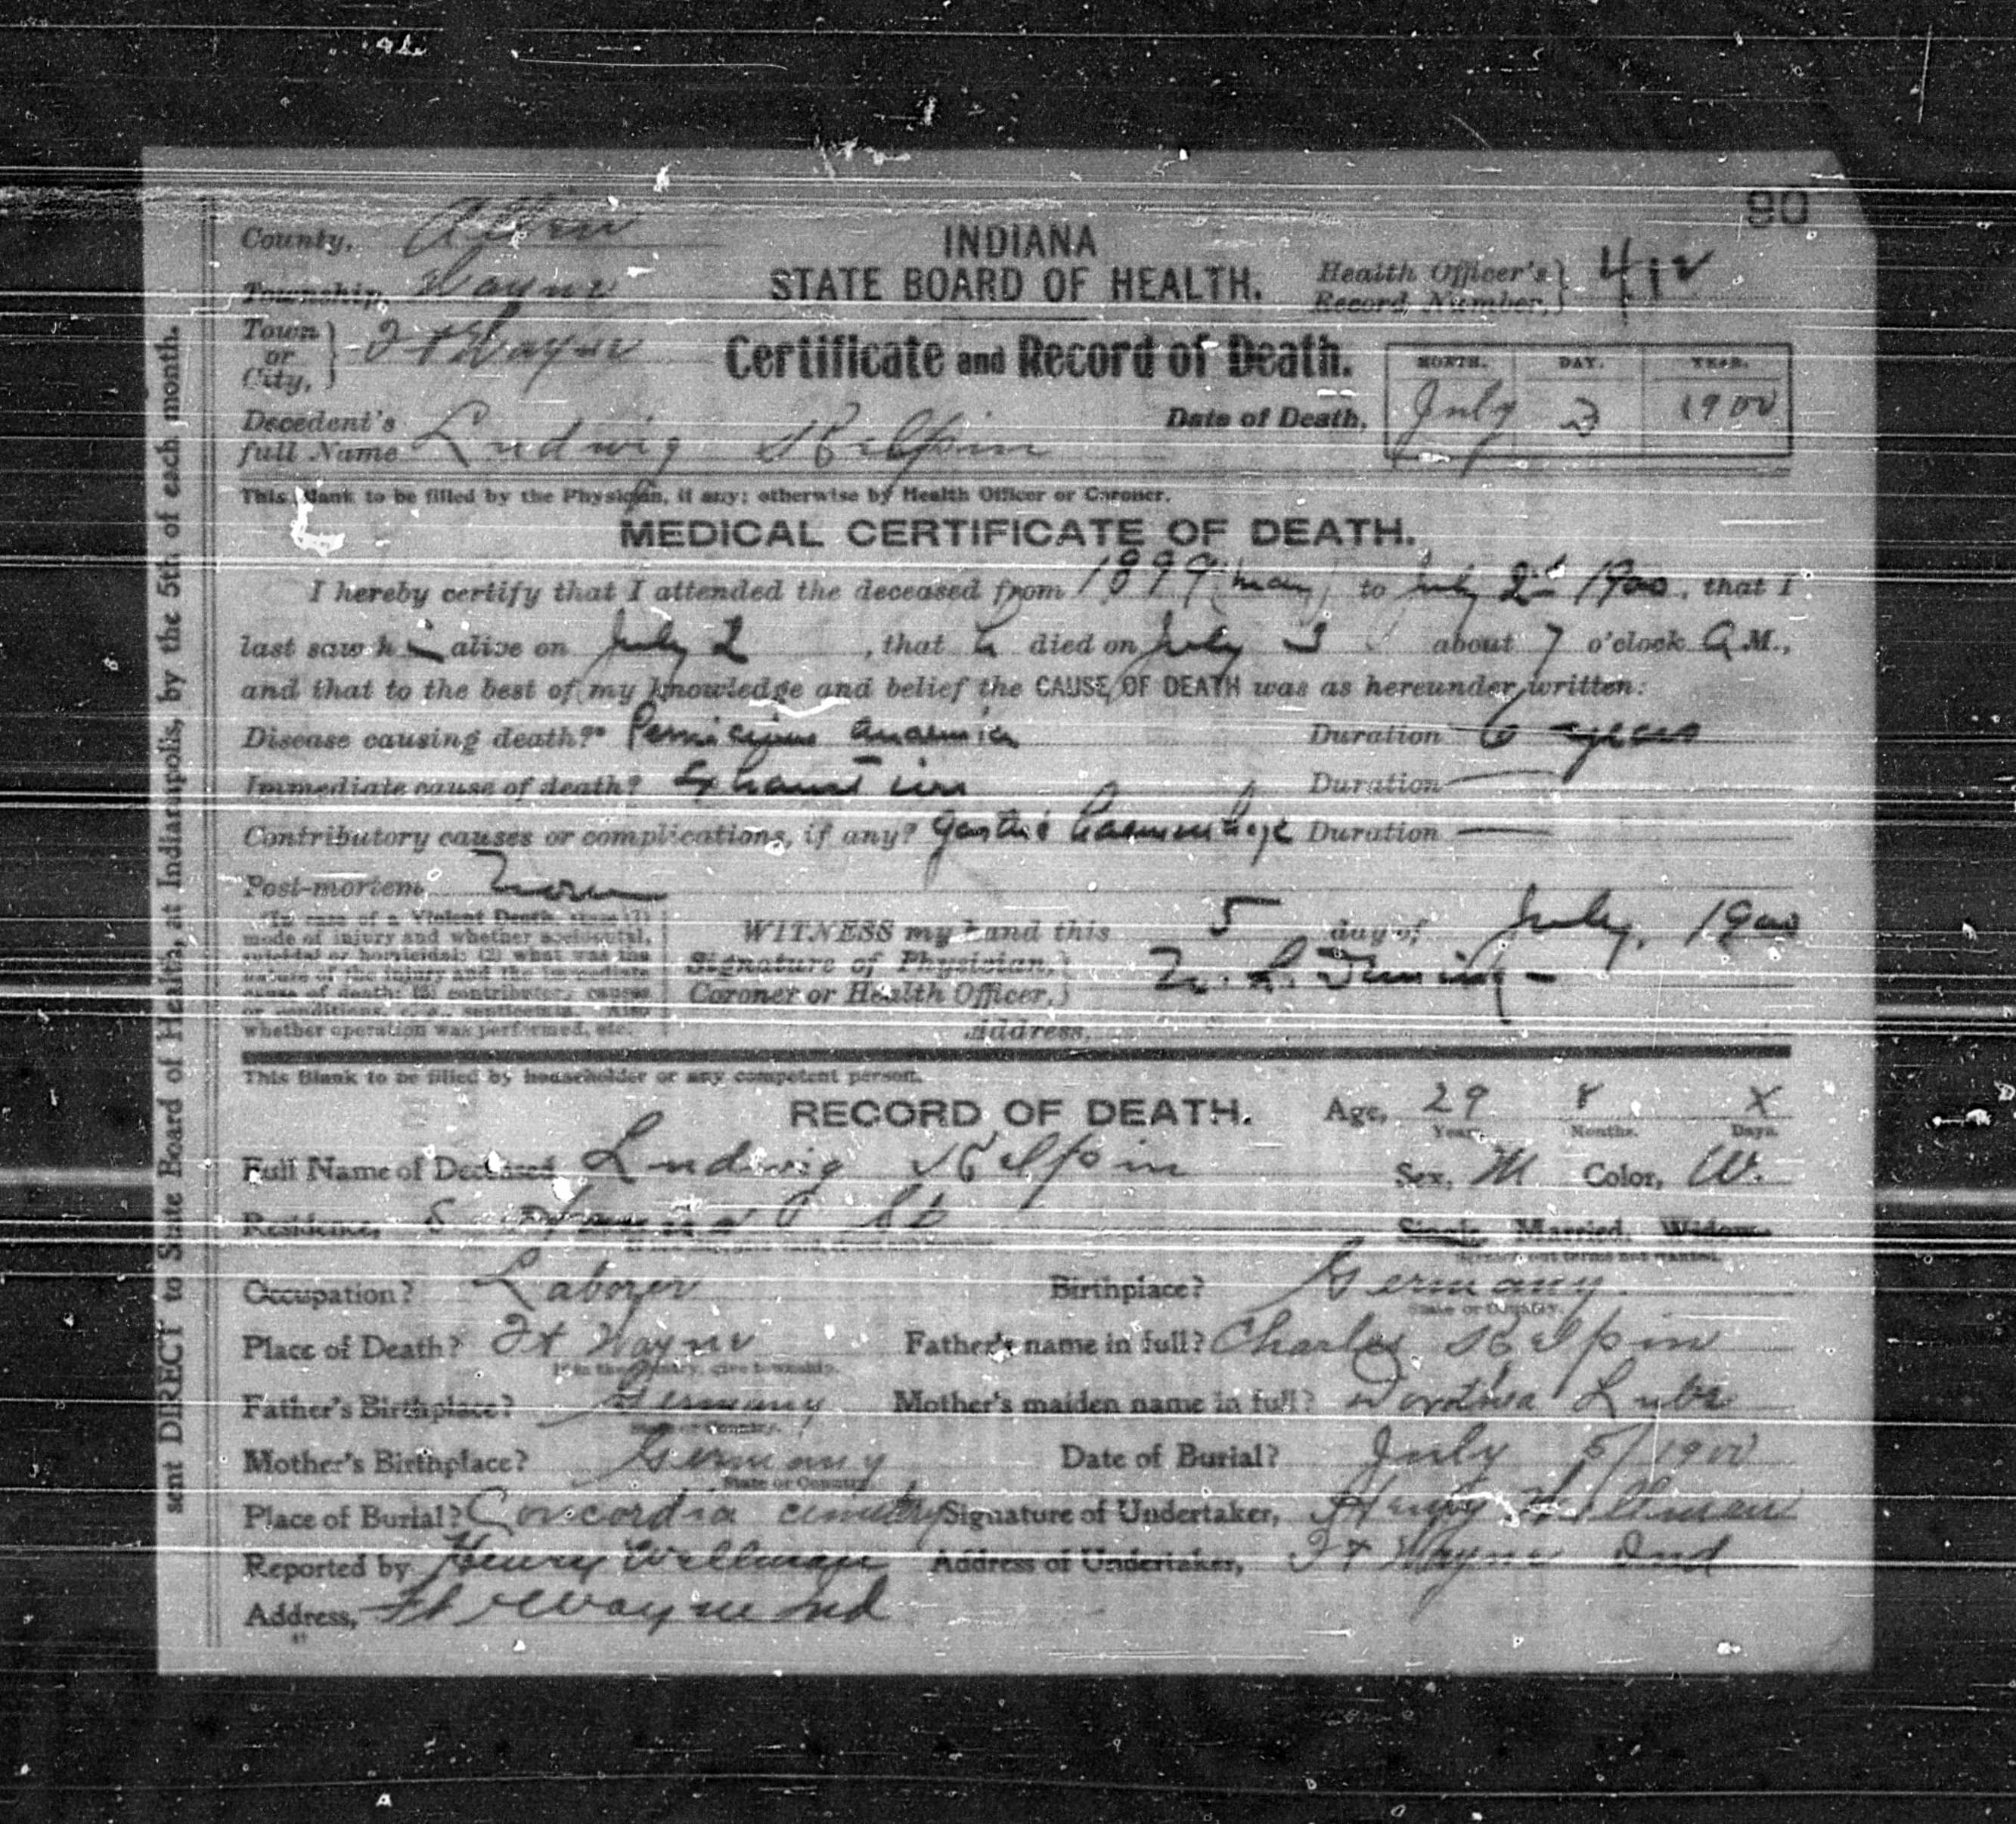 90
County, Allen
INDIANA
STATE BOARD OF HEALTH.
Health Officer's Record Number, 412
Township, Wayne
Town or City, Ft Wayne
Certificate and Record of Death.
MONTH. DAY. YEAR.
Date of Death, July 3 1900
Decedent's full Name Ludwig Kelpin
This Blank to be filled by the Physician, if any; otherwise by Health Officer or Coroner.
MEDICAL CERTIFICATE OF DEATH.
I hereby certify that I attended the deceased from 1899 (May) to July 2nd 1900, that I
last saw him alive on July 2, that he died on July 3 about 7 o'clock A M.,
and that to the best of my knowledge and belief the CAUSE OF DEATH was as hereunder written:
Disease causing death?* Pernicious anaemia Duration 6 years
Immediate cause of death? Exhaustion Duration —
Contributory causes or complications, if any? Gastric haemorrhage Duration —
Post-mortem, None
*In case of a Violent Death, state (1)
mode of injury and whether accidental,
suicidal or homicidal; (2) what was the
nature of the injury and the immediate
cause of death; (3) contributory causes
or conditions, e. g., septicemia. Also
whether operation was performed, etc.
WITNESS my hand this 5 day of July, 1900
Signature of Physician, Coroner or Health Officer,
Address,
This Blank to be filled by householder or any competent person.
RECORD OF DEATH.
Age, 29 Years, 8 Months. X Days.
Full Name of Deceased Ludwig Kelpin Sex, M Color, W.
Residence, St Single, Married, Widow
Strike out terms not wanted.
Occupation? Laborer Birthplace? Germany
State or Country.
Place of Death? Ft Wayne Father's name in full? Charles Kelpin
If in the country, give township.
Father's Birthplace? Germany Mother's maiden name in full? Dorothea Lube
State or Country.
Mother's Birthplace? Germany Date of Burial? July 5/1900
State or Country
Place of Burial? Concordia cemetery Signature of Undertaker, Henry Wellman
Reported by Henry Wellman Address of Undertaker, Ft Wayne Ind
Address, Ft Wayne Ind
sent DIRECT to State Board of Health, at Indianapolis, by the 5th of each month.